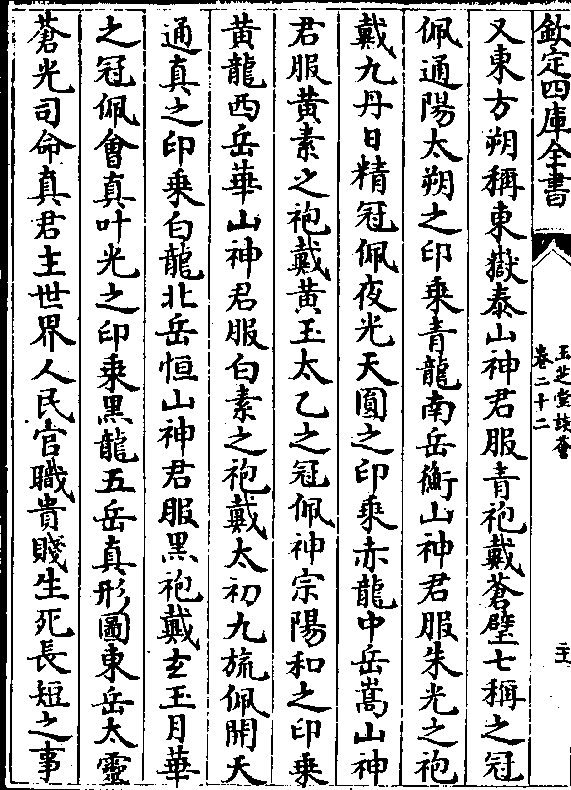 欽定四庫全書
玉芝堂談薈
卷二十二
又東方朔稱東嶽泰山神君服青袍戴蒼璧七稱之冠
佩通陽太朔之印乘青龍南岳衡山神君服朱光之袍
戴九丹日精冠佩夜光天圓之印乘赤龍中岳嵩山神
君服黃素之袍戴黃玉太乙之冠佩神宗陽和之印乘
黃龍西岳華山神君服白素之袍戴太初九旒佩開天
通真之印乘白龍北岳恒山神君服黑袍戴玄玉月華
之冠佩會真叶光之印乘黑龍五岳真形圖東岳太靈
蒼光司命真君主世界人民官職貴賤生死長短之事